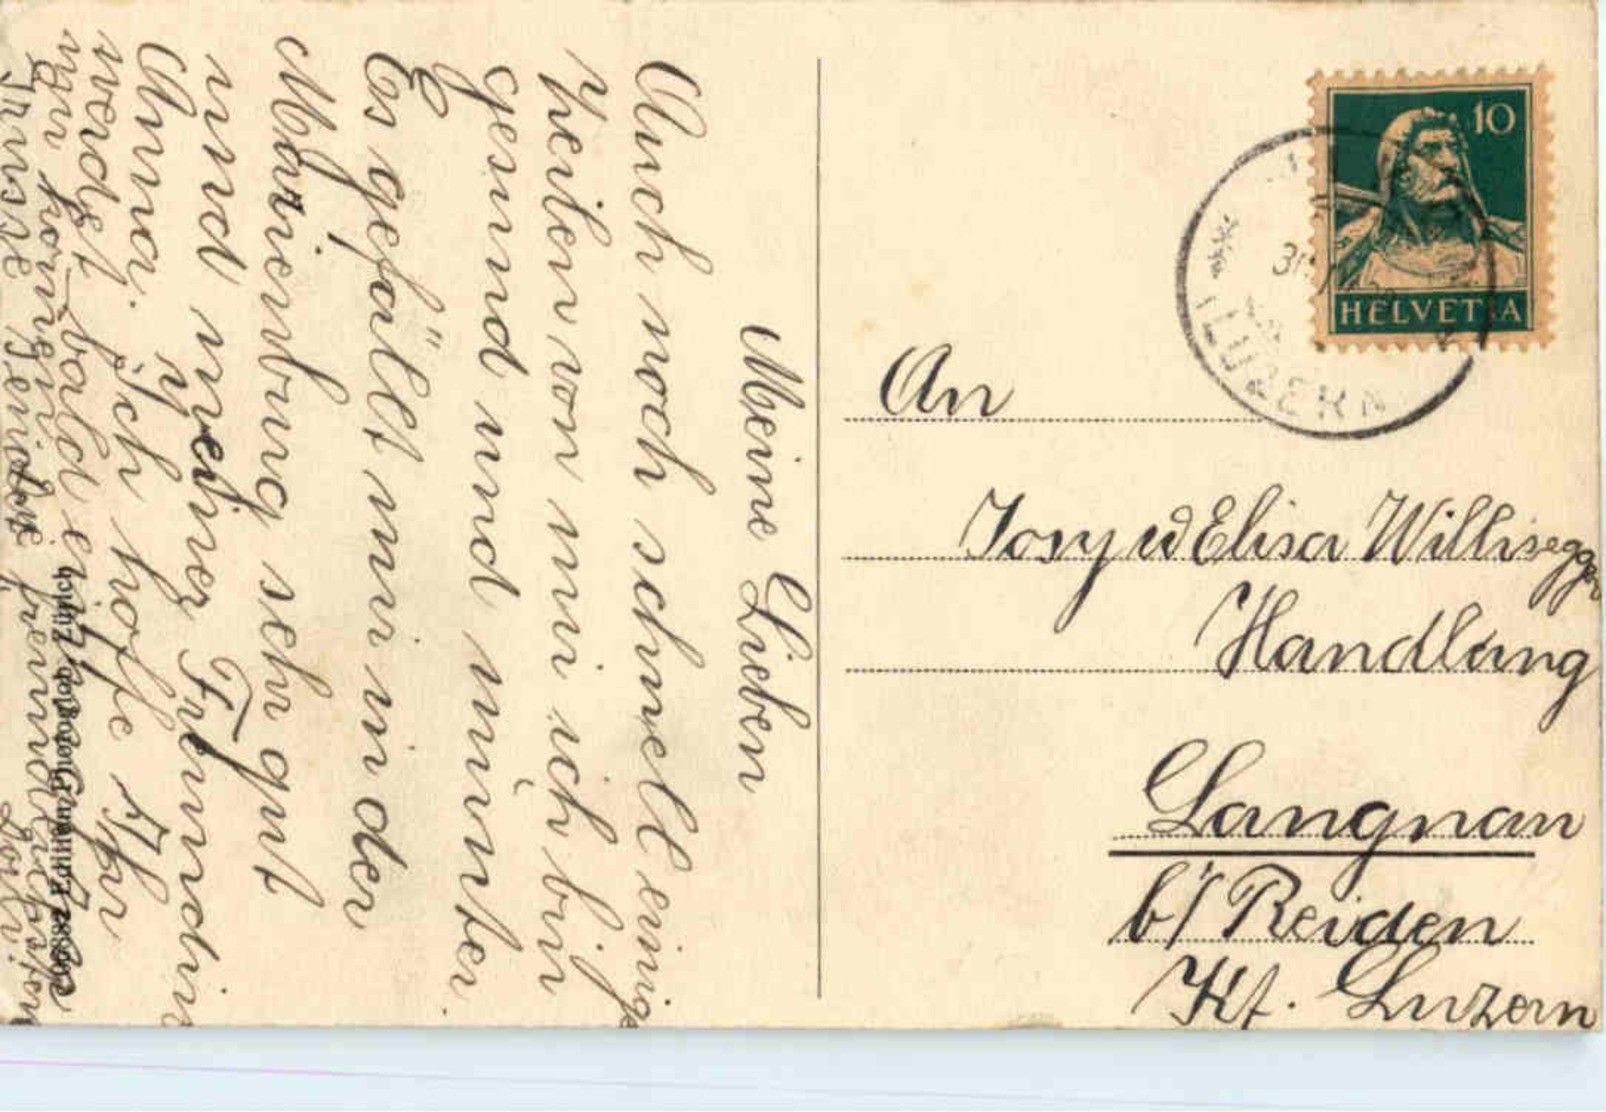 Meine Lieben
Auch noch schnell einige
Zeilen von mir ich bin
gesund und munter.
Es gefällt mir in der
Marienburg sehr gut
und meiner Freundin
Anna. Ich hoffe Ihr
werdet bald ein
mir kommen.
Grüsse
10
HELVETIA
LUZERN
An
Josy u Elisa Willisegger
Handlung
Langnau
b/ Reiden
Kt. Luzern
Edition Photoglob, Zürich